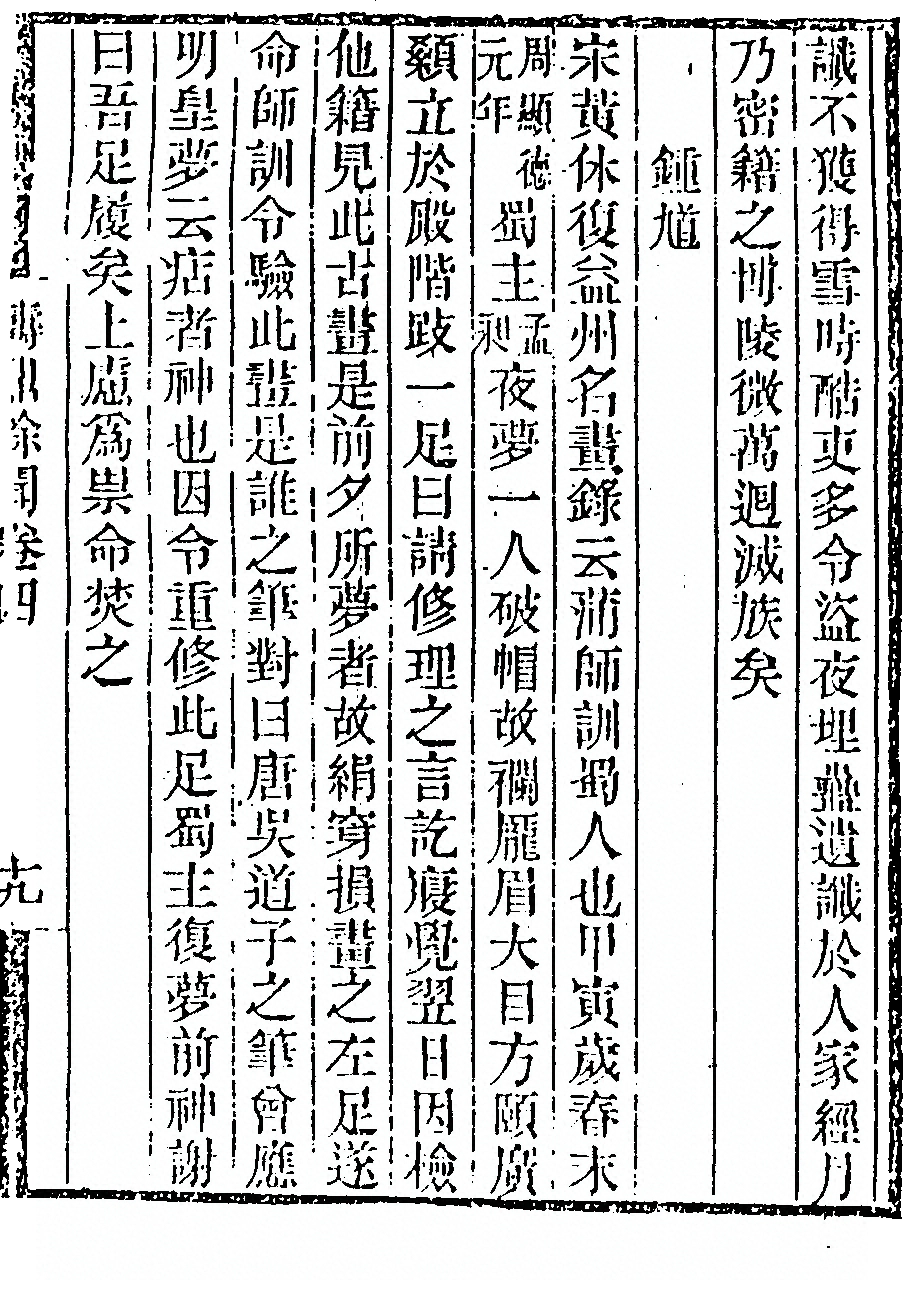 讖不獲得雪時酷吏多令盜夜埋蠱遺讖於人家經月
乃密籍之博陵微萬迥滅族矣
鍾馗
宋黃休復益州名畫錄云蒲師訓蜀人也甲寅歲春末
周顯德元年蜀主孟昶夜夢一人破帽故襴龐眉大目方頤廣
顙立於殿階跂一足曰請修理之言訖寢覺翌日因檢
他籍見此古畫是前夕所夢者故絹穿損畫之左足遂
命師訓令驗此畫是誰之筆對曰唐吳道子之筆曾應
明皇夢云痁者神也因令重修此足蜀主復夢前神謝
曰吾足履矣上慮爲祟命焚之
卷四
十九